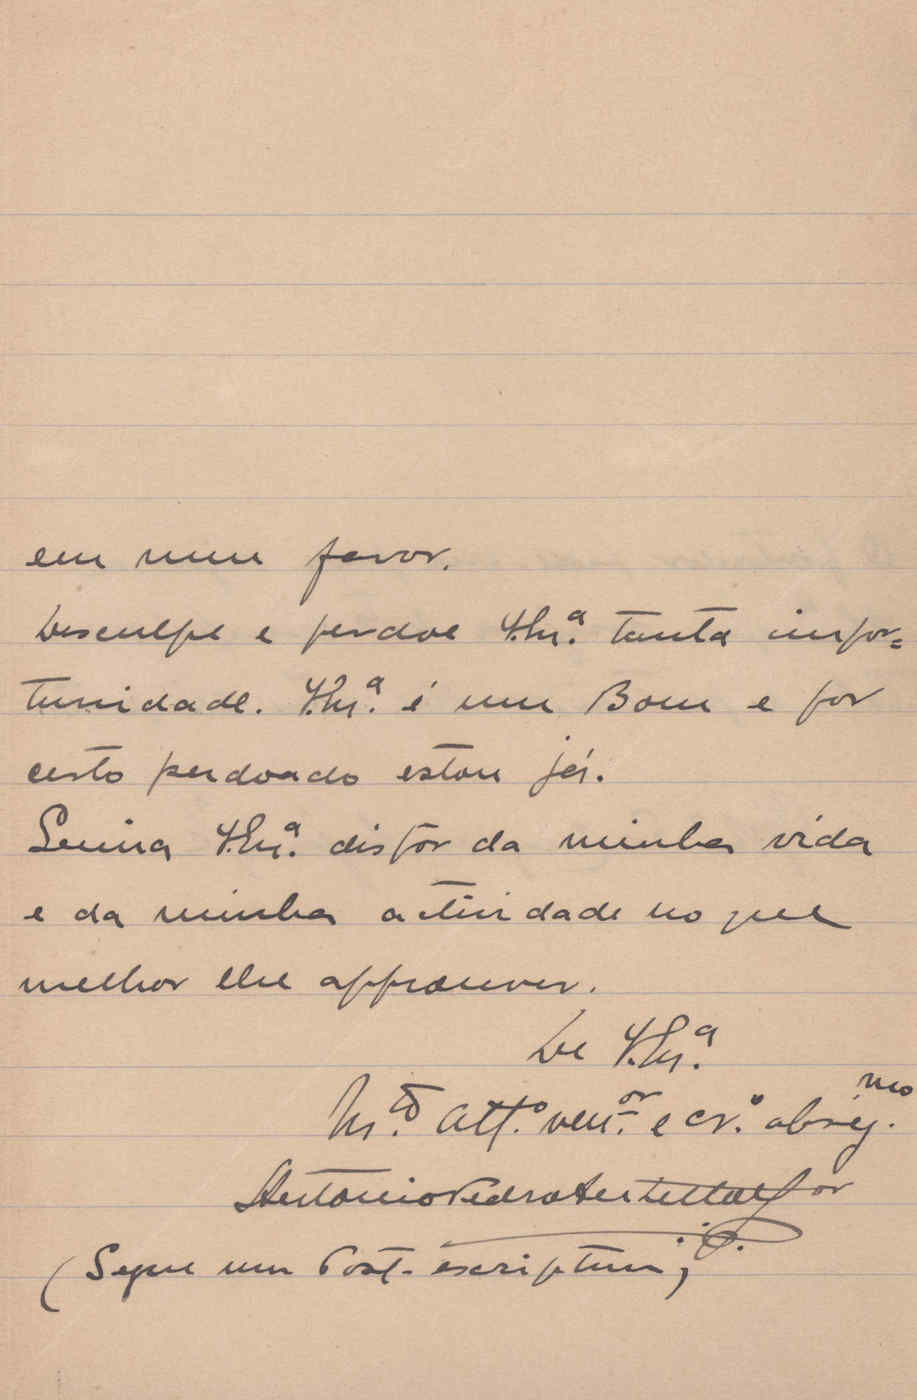 em um favor.
Desculpe e perdoe V.Ex.ª tanta impor=
tunidade. V.Ex.ª é um Bom e por
certo perdoado estou já.
Queira V.Ex.ª dispor da minha vida
e da minha actividade no que
melhor lhe approuver.
De V.Ex.ª
M.to Att.º ven.or e cr.º obrig.mo
Antonio Pedro
(Segue um Post-escriptum)